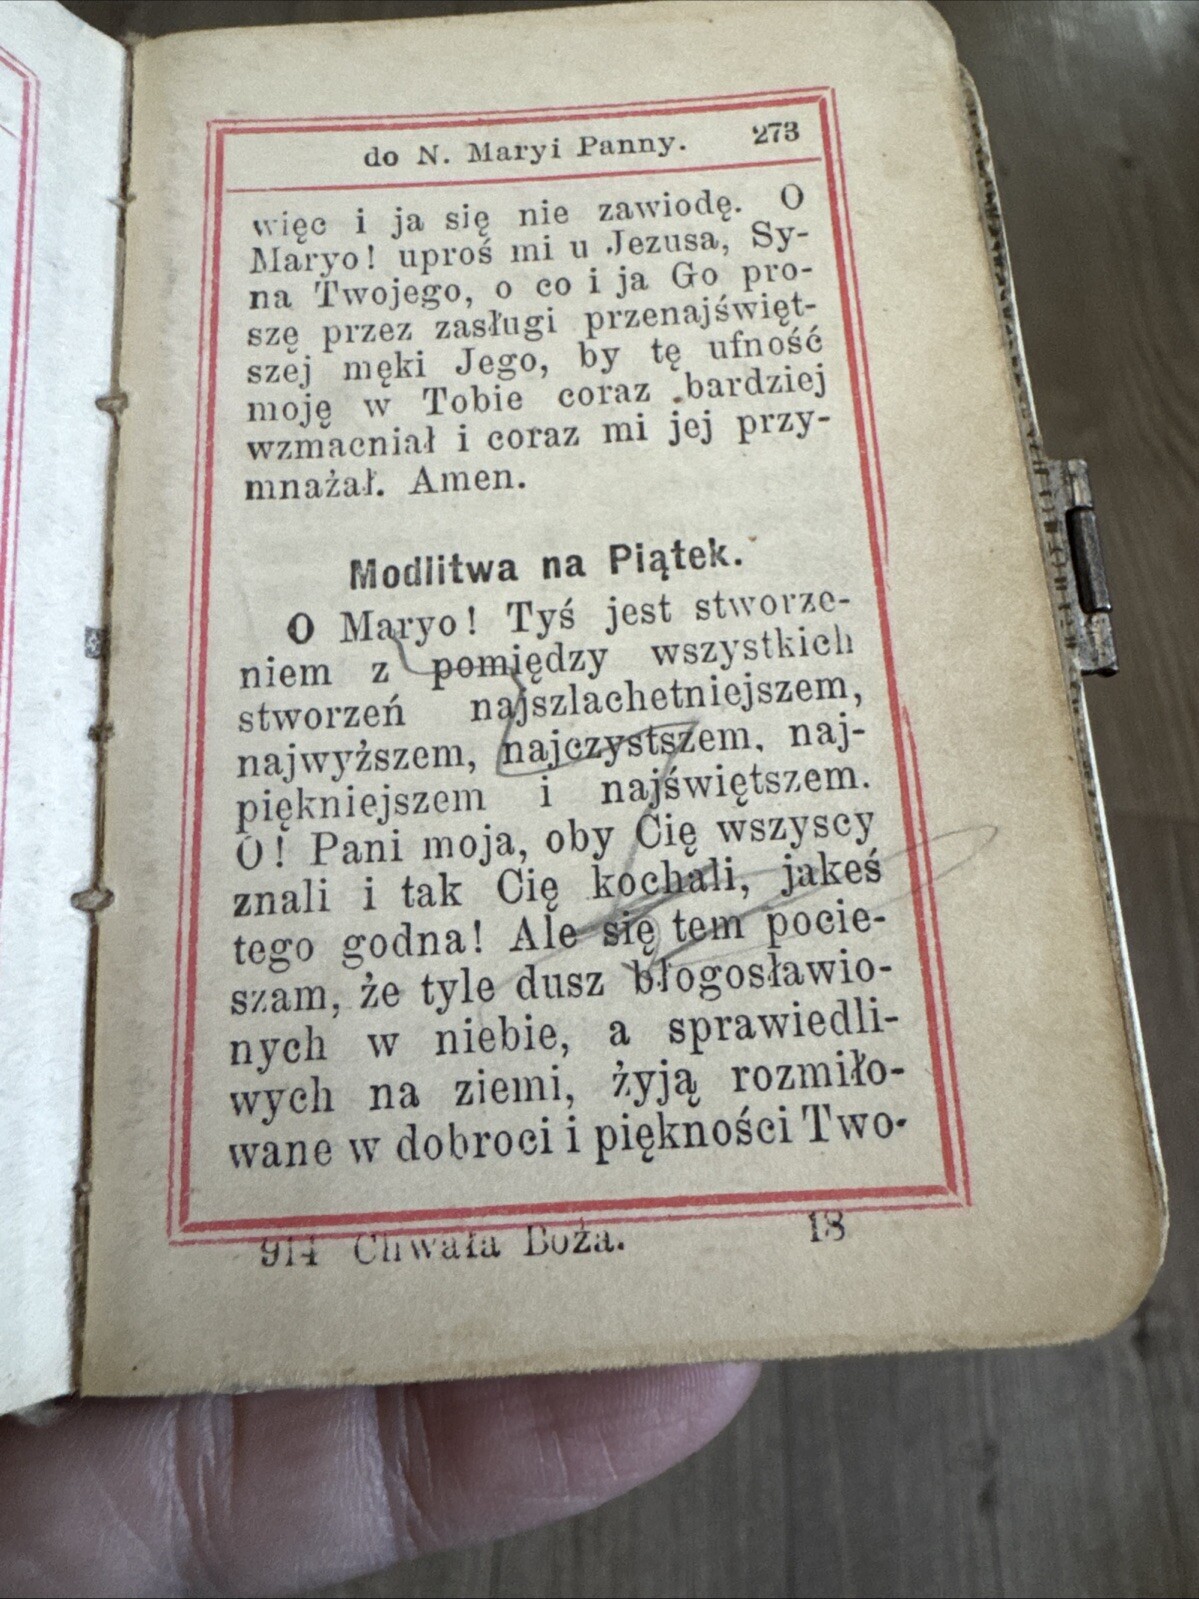 do N. Maryi Panny. 273
więc i ja się nie zawiodę. O
Maryo! uproś mi u Jezusa, Sy-
na Twojego, o co i ja Go pro-
szę przez zasługi przenajświęt-
szej męki Jego, by tę ufność
moję w Tobie coraz bardziej
wzmacniał i coraz mi jej przy-
mnażał. Amen.
Modlitwa na Piątek.
O Maryo! Tyś jest stworze-
niem z pomiędzy wszystkich
stworzeń najszlachetniejszem,
najwyższem, najczystszem, naj-
piękniejszem i najświętszem.
O! Pani moja, oby Cię wszyscy
znali i tak Cię kochali, jakeś
tego godna! Ale się tem pocie-
szam, że tyle dusz błogosławio-
nych w niebie, a sprawiedli-
wych na ziemi, żyją rozmiło-
wane w dobroci i piękności Two-
914 Chwała Boża. 18